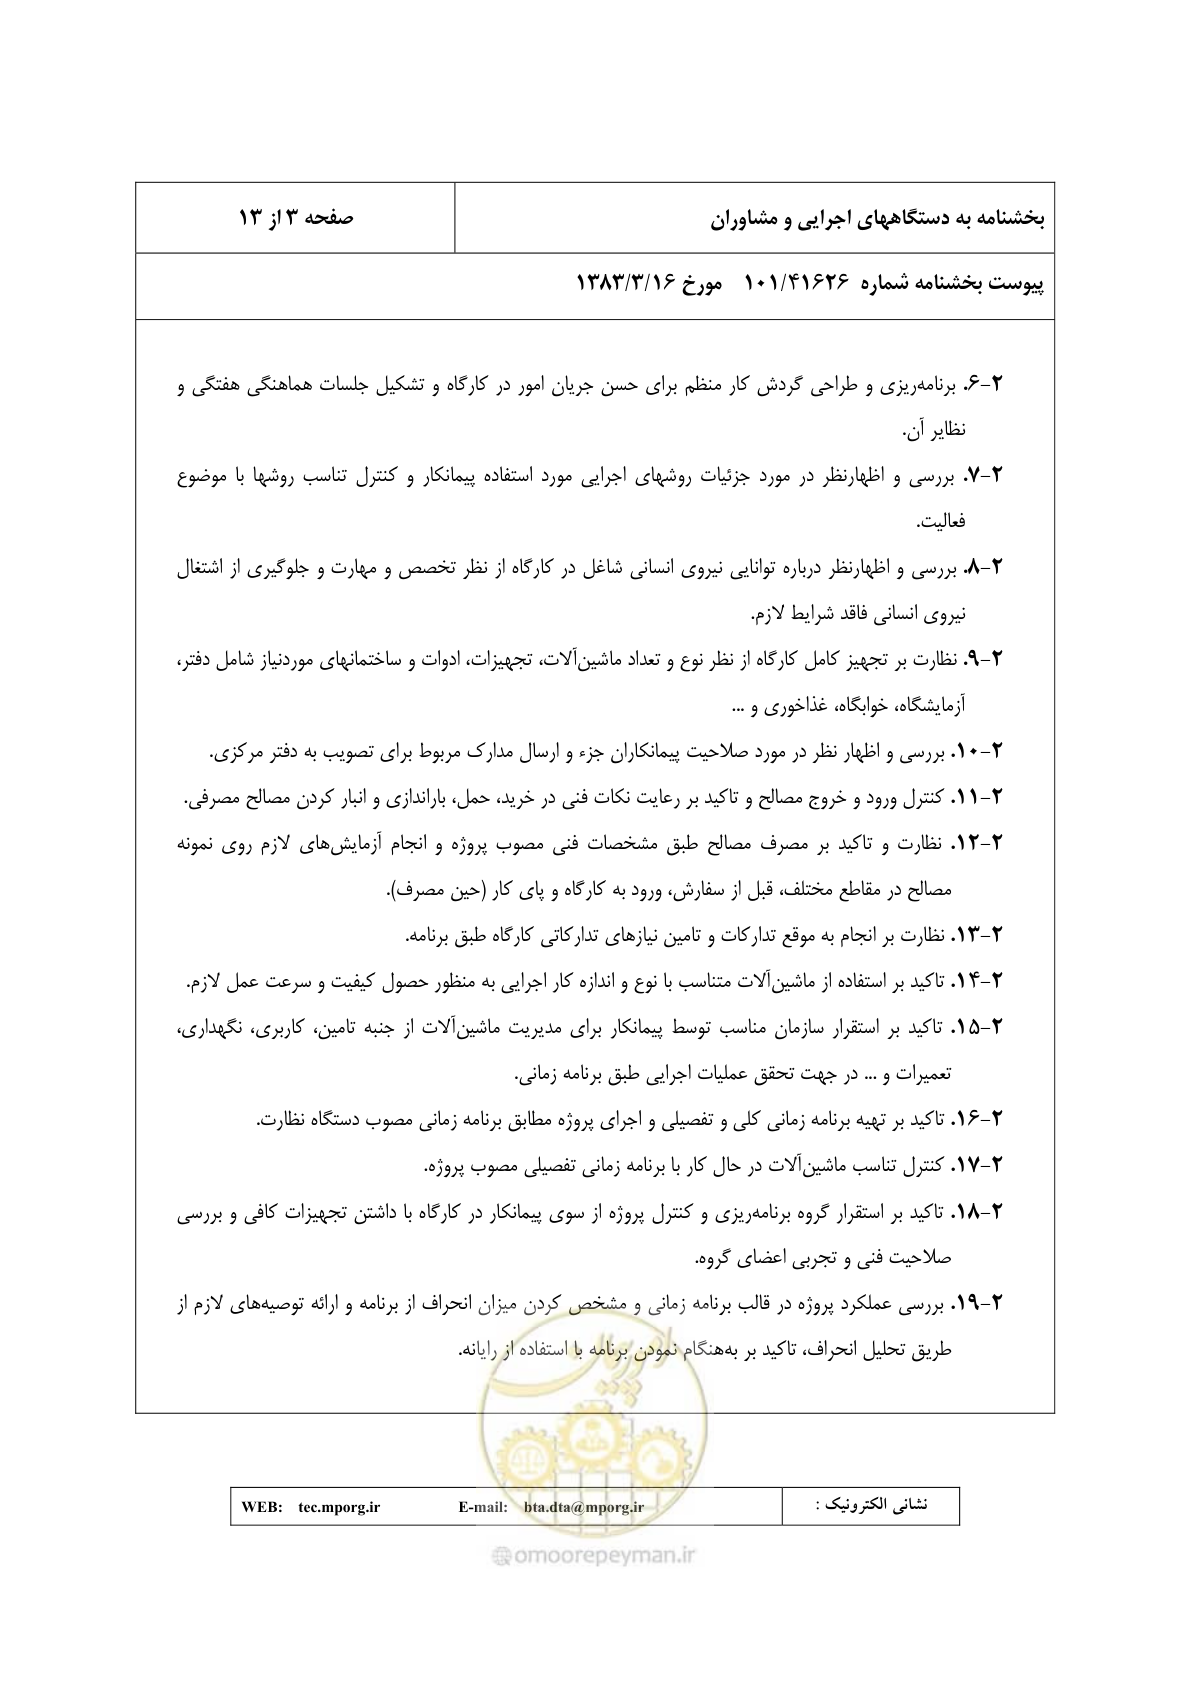 بخشنامه به دستگاههای اجرایی و مشاوران
صفحه ۳ از ۱۳
پیوست بخشنامه شماره ۱۰۱/۴۱۶۲۶ مورخ ۱۳۸۳/۳/۱۶
۶-۲. برنامه‌ریزی و طراحی گردش کار منظم برای حسن جریان امور در کارگاه و تشکیل جلسات هماهنگی هفتگی و
نظایر آن.
۷-۲. بررسی و اظهارنظر در مورد جزئیات روشهای اجرایی مورد استفاده پیمانکار و کنترل تناسب روشها با موضوع
فعالیت.
۸-۲. بررسی و اظهارنظر درباره توانایی نیروی انسانی شاغل در کارگاه از نظر تخصص و مهارت و جلوگیری از اشتغال
نیروی انسانی فاقد شرایط لازم.
۹-۲. نظارت بر تجهیز کامل کارگاه از نظر نوع و تعداد ماشین‌آلات، تجهیزات، ادوات و ساختمانهای موردنیاز شامل دفتر،
آزمایشگاه، خوابگاه، غذاخوری و ...
۱۰-۲. بررسی و اظهار نظر در مورد صلاحیت پیمانکاران جزء و ارسال مدارک مربوط برای تصویب به دفتر مرکزی.
۱۱-۲. کنترل ورود و خروج مصالح و تاکید بر رعایت نکات فنی در خرید، حمل، باراندازی و انبار کردن مصالح مصرفی.
۱۲-۲. نظارت و تاکید بر مصرف مصالح طبق مشخصات فنی مصوب پروژه و انجام آزمایش‌های لازم روی نمونه
مصالح در مقاطع مختلف، قبل از سفارش، ورود به کارگاه و پای کار (حین مصرف).
۱۳-۲. نظارت بر انجام به موقع تدارکات و تامین نیازهای تدارکاتی کارگاه طبق برنامه.
۱۴-۲. تاکید بر استفاده از ماشین‌آلات متناسب با نوع و اندازه کار اجرایی به منظور حصول کیفیت و سرعت عمل لازم.
۱۵-۲. تاکید بر استقرار سازمان مناسب توسط پیمانکار برای مدیریت ماشین‌آلات از جنبه تامین، کاربری، نگهداری،
تعمیرات و ... در جهت تحقق عملیات اجرایی طبق برنامه زمانی.
۱۶-۲. تاکید بر تهیه برنامه زمانی کلی و تفصیلی و اجرای پروژه مطابق برنامه زمانی مصوب دستگاه نظارت.
۱۷-۲. کنترل تناسب ماشین‌آلات در حال کار با برنامه زمانی تفصیلی مصوب پروژه.
۱۸-۲. تاکید بر استقرار گروه برنامه‌ریزی و کنترل پروژه از سوی پیمانکار در کارگاه با داشتن تجهیزات کافی و بررسی
صلاحیت فنی و تجربی اعضای گروه.
۱۹-۲. بررسی عملکرد پروژه در قالب برنامه زمانی و مشخص کردن میزان انحراف از برنامه و ارائه توصیه‌های لازم از
طریق تحلیل انحراف، تاکید بر به‌هنگام نمودن برنامه با استفاده از رایانه.
امور پیمان
نشانی الکترونیک :
WEB: tec.mporg.ir E-mail: bta.dta@mporg.ir
@omoorepeyman.ir